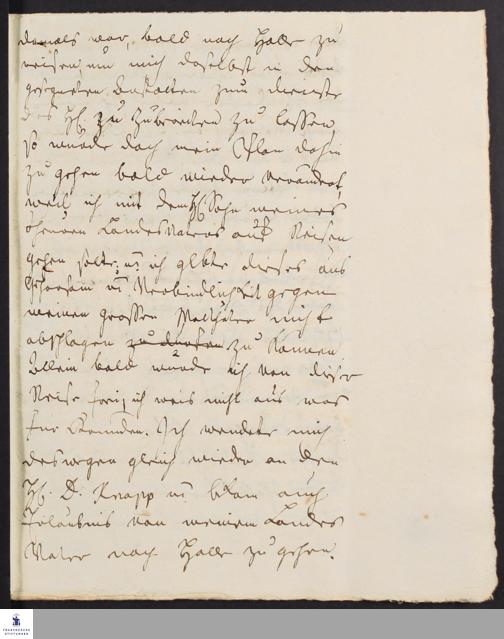 damals war, bald nach Halle zu
reisen, um mich daselbst in den
gesegneten Anstalten zum Dienste
des Hℌ. zu zubereiten zu lassen,
so wurde doch mein Plan dahin
zu gehen bald wieder verändert,
weil ich mit dem H. Sohn meines
theuren Landes Vaters auf Reisen
gehen solte; u. ich glbte dieses aus
Gehorsam u. Verbindlichkeit gegen
meinen grossen Wolthäter nicht
abschlagen zu dürfen zu können.
Allein bald wurde ich von dieser
Reise frei; ich weis nicht aus was
für Gründen. Ich wendete mich
deswegen gleich wieder an den
H. D. Knapp u. bekam auch
Erlaubnis von meinem Landes
Vater nach Halle zu gehen.
FRANCKESCHE
STIFTUNGEN